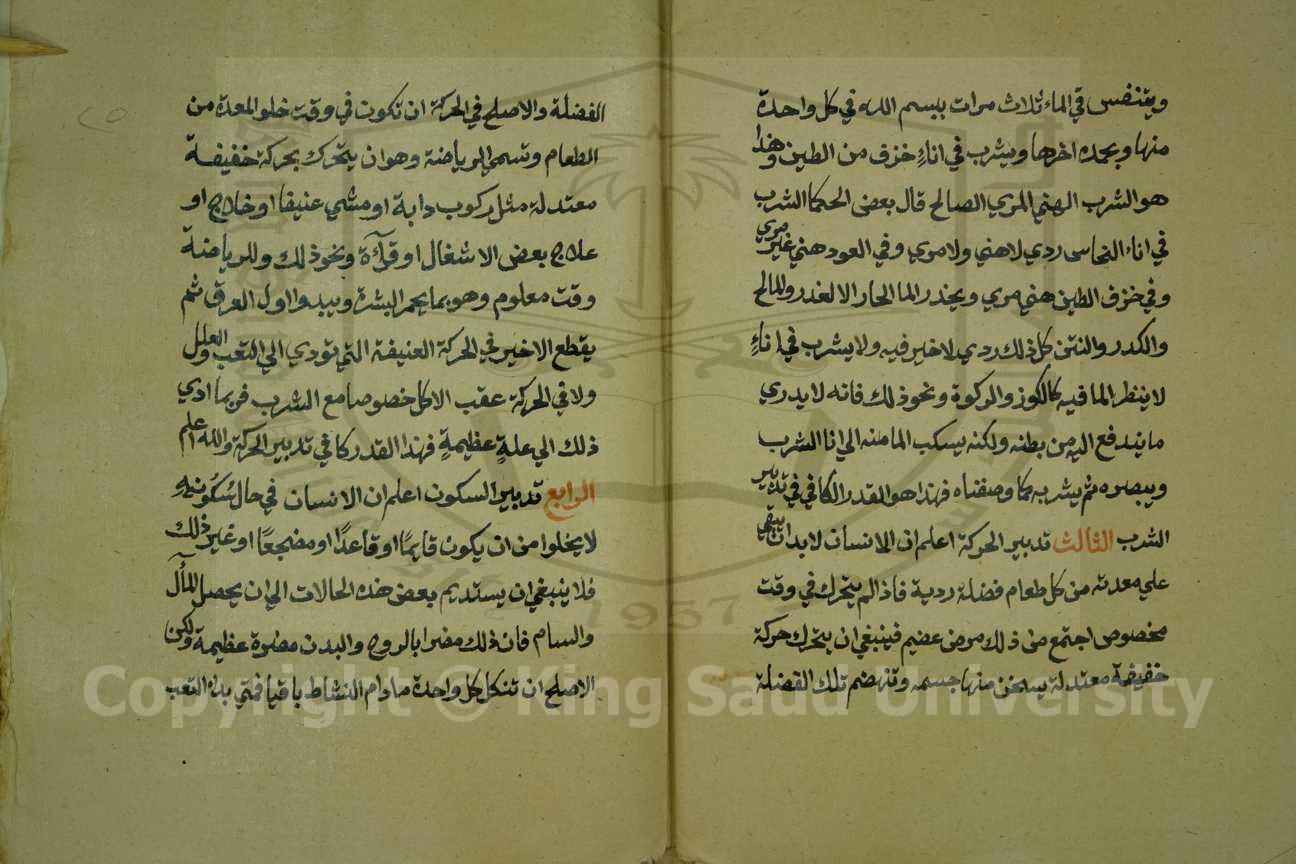 ويتنفس في الماء ثلاث مرات ببسم الله في كل واحدة
منها وبحمده اخرها ويشرب في اناء خزف من الطين وهذا
هو الشرب الهني المري الصالح قال بعض الحكما الشرب
في اناء النحاس ردي لاهني ولا مري وفي العود هني غير مري
وفي خزف الطين هني مري ويحذر الما الحار الا لغدر والمالح
والكدر والنتن كل ذلك ردي لاخير فيه ولا يشرب في اناء
لا ينظر الما فيه كالكوز والركوة ونحو ذلك فانه لا يدري
ما يندفع اليه من بطنه ولكنه يسكب الما منه الي انا الشرب
ويبصره ثم يشربه كما وصفناه فهذا هو القدر الكافي في تدبير
الشرب الثالث تدبير الحركة اعلم ان الانسان لابد ان يبقي
علي معدته من كل طعام فضلة ردية فاذا لم يتحرك في وقت
مخصوص اجتمع من ذلك مرض عضيم فينبغي ان يتحرك حركة
خفيفة معتدلة يسخن منها جسمه وتنهضم تلك الفضلة
الفضلة والاصلح في الحركة ان تكون في وقت خلو المعدة من
الطعام وتسمي الرياضة وهو ان يتحرك بحركة خفيفة
معتدلة مثل ركوب دابة او مشي عنيفا او خلاج او
علاج بعض الاشغال او قرآة ونحو ذلك وللرياضة
وقت معلوم وهو بما يحمر البشرة ويبدوا اول العرق ثم
يقطع الاخير في الحركة العنيفة التي تودي الي التعب والعلل
ولا في الحركة عقب الاكل خصوصا مع الشرب فربما ادي
ذلك الي علة عظيمة فهذا القدر كافي تدبير الحركة والله اعلم
الرابع تدبير السكون اعلم ان الانسان في حال سكونه
لا يخلوا من ان يكون قايما او قاعدًا او مضجعًا او غير ذلك
فلا ينبغي ان يستديم بعض هذه الحالات الي ان يحصل الملل
والسام فان ذلك مضرا بالروح والبدن مضرة عظيمة ولكن
الاصلح ان تنكل كل واحدة مادام النشاط باقيا فمتي بدا التعب
1957
Copyright © King Saud University